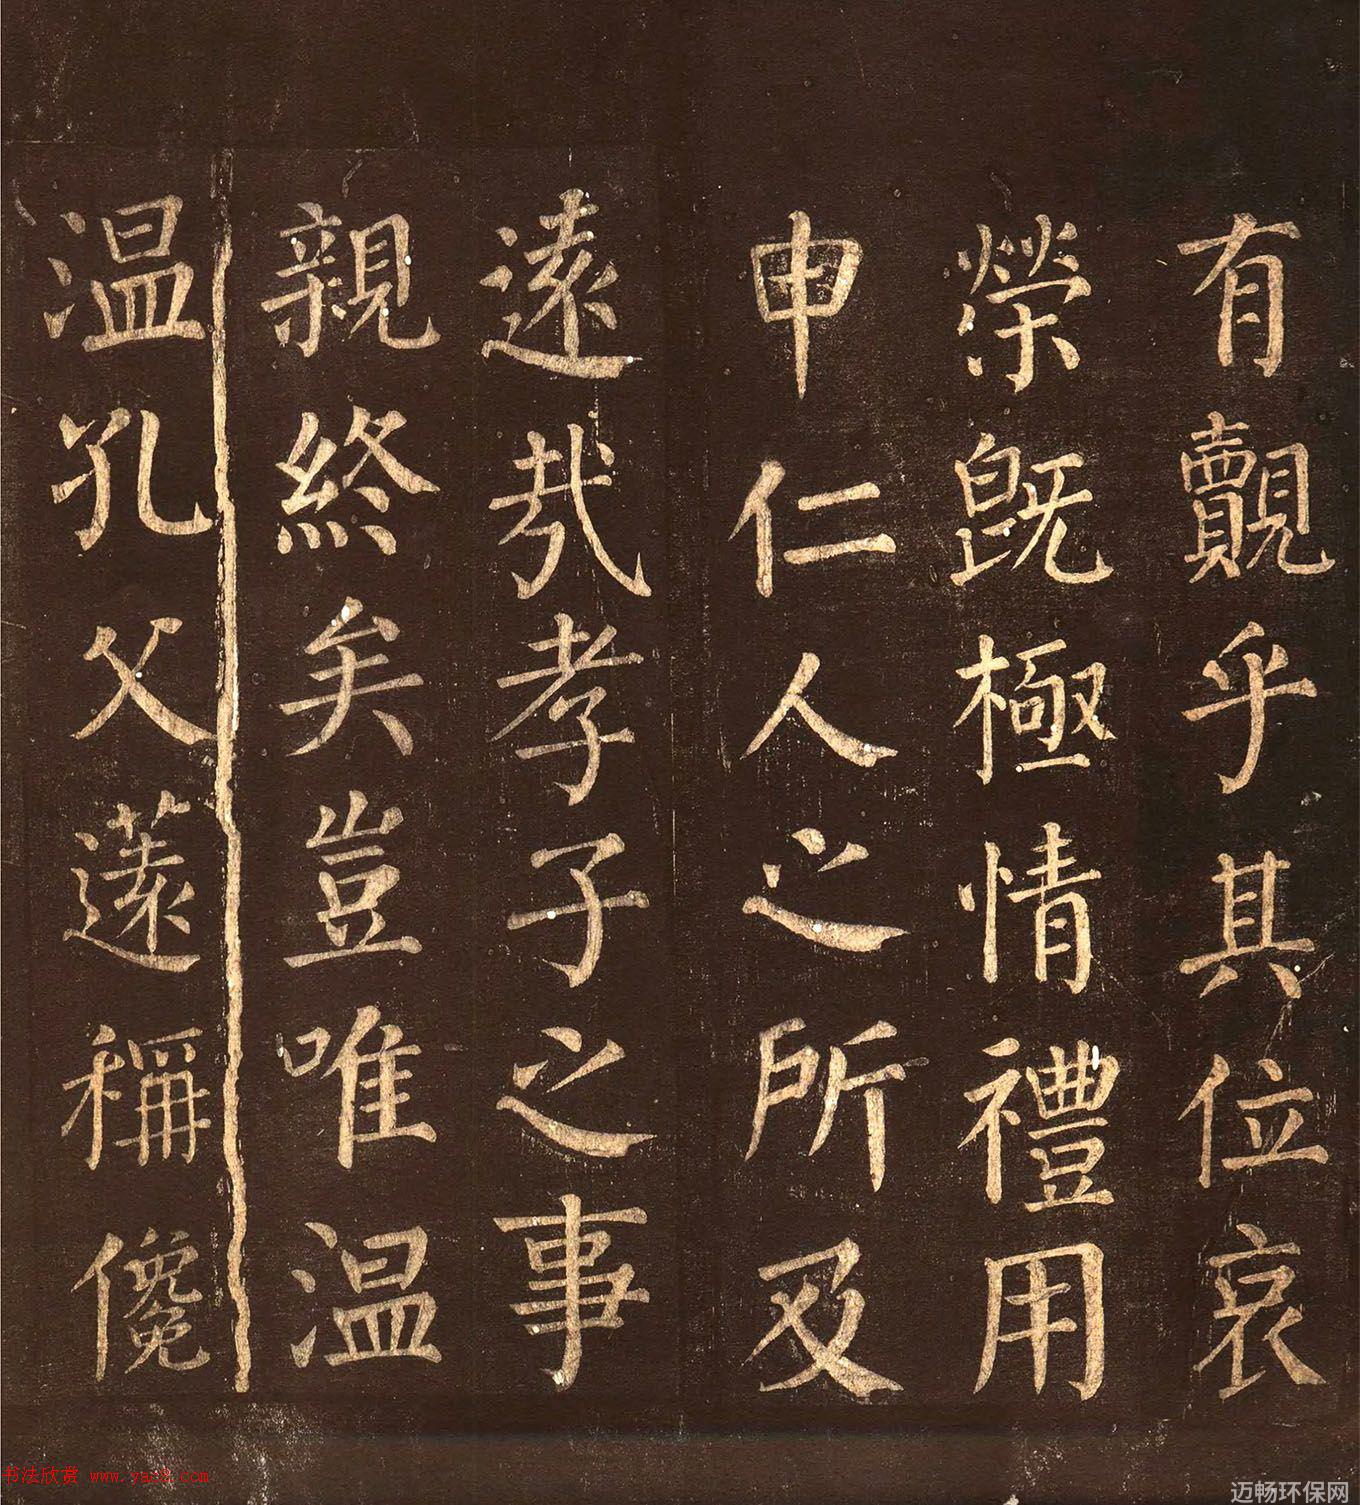 有覿乎其位哀
榮既極情禮用
申仁人之所及
遠哉孝子之事
親終矣豈唯温
温孔父遽稱儳
书法欣赏 www.yac8.com
迈畅环保网